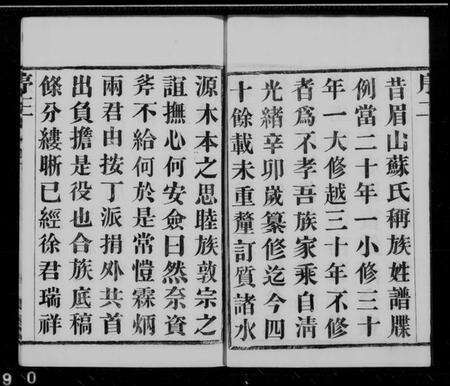 昔眉山蘇氏稱族姓譜牒
例當二十年一小修三十
年一大修越三十年不修
者為不孝吾族家乘自清
光緒辛卯歲纂修迄今四
十餘載未重釐訂質諸水
源木本之思睦族敦宗之
誼撫心何安僉曰然奈資
斧不給何於是常愷霖炳
兩君由按丁派捐外共首
出負擔是役也合族底稿
條分縷晰已經徐君瑞祥
序二
90